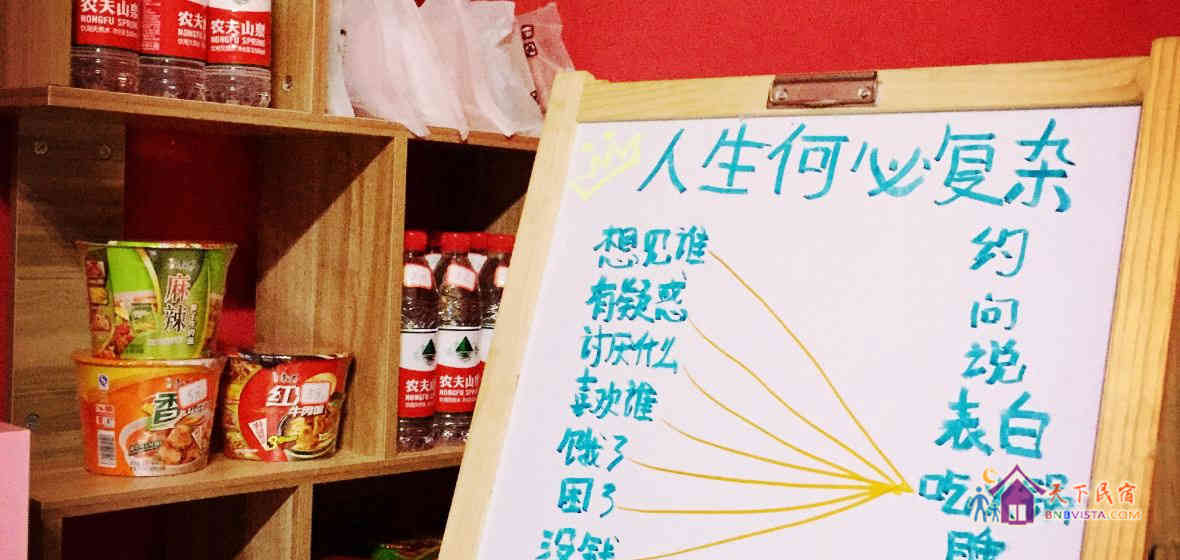 农夫山泉 农夫山泉 农夫山泉
NONGFU SPRING NONGFU SPRING
人生何必复杂
想见谁 约
有疑惑 问
讨厌什么 说
喜欢谁 表白
饿了 吃
困了 睡
没钱
麻辣
香
红
牛肉面
农夫山泉 农夫山泉
天下民宿
BNBVISTA.COM